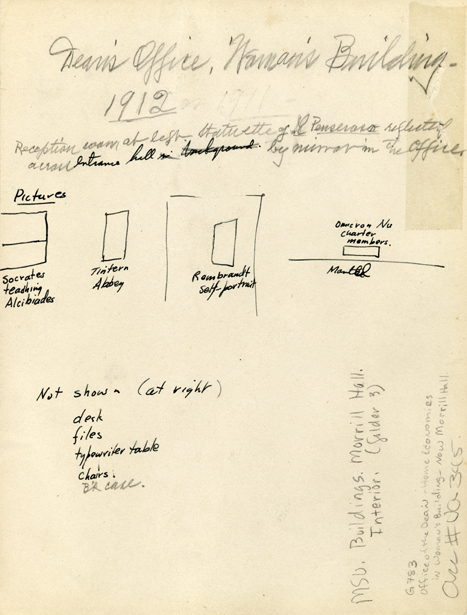 Dean's Office, Woman's Building -
1912 or 1911 -
Reception room at left. Statuette of Il Penseroso reflected
across entrance hall in background by mirror in the Office
Pictures
Socrates
teaching
Alcibiades
Tintern
Abbey
Rembrandt
self-portrait
Omicron Nu
Charter
members.
Mantel
Not shown (at right)
desk
files
typewriter table
chairs.
Bk case.
MSU. Buildings. Morrill Hall.
Interior. (folder 3)
G783
Office of the Dean - Home Economics
in Woman's Building - Now Morrill Hall
acc # UA